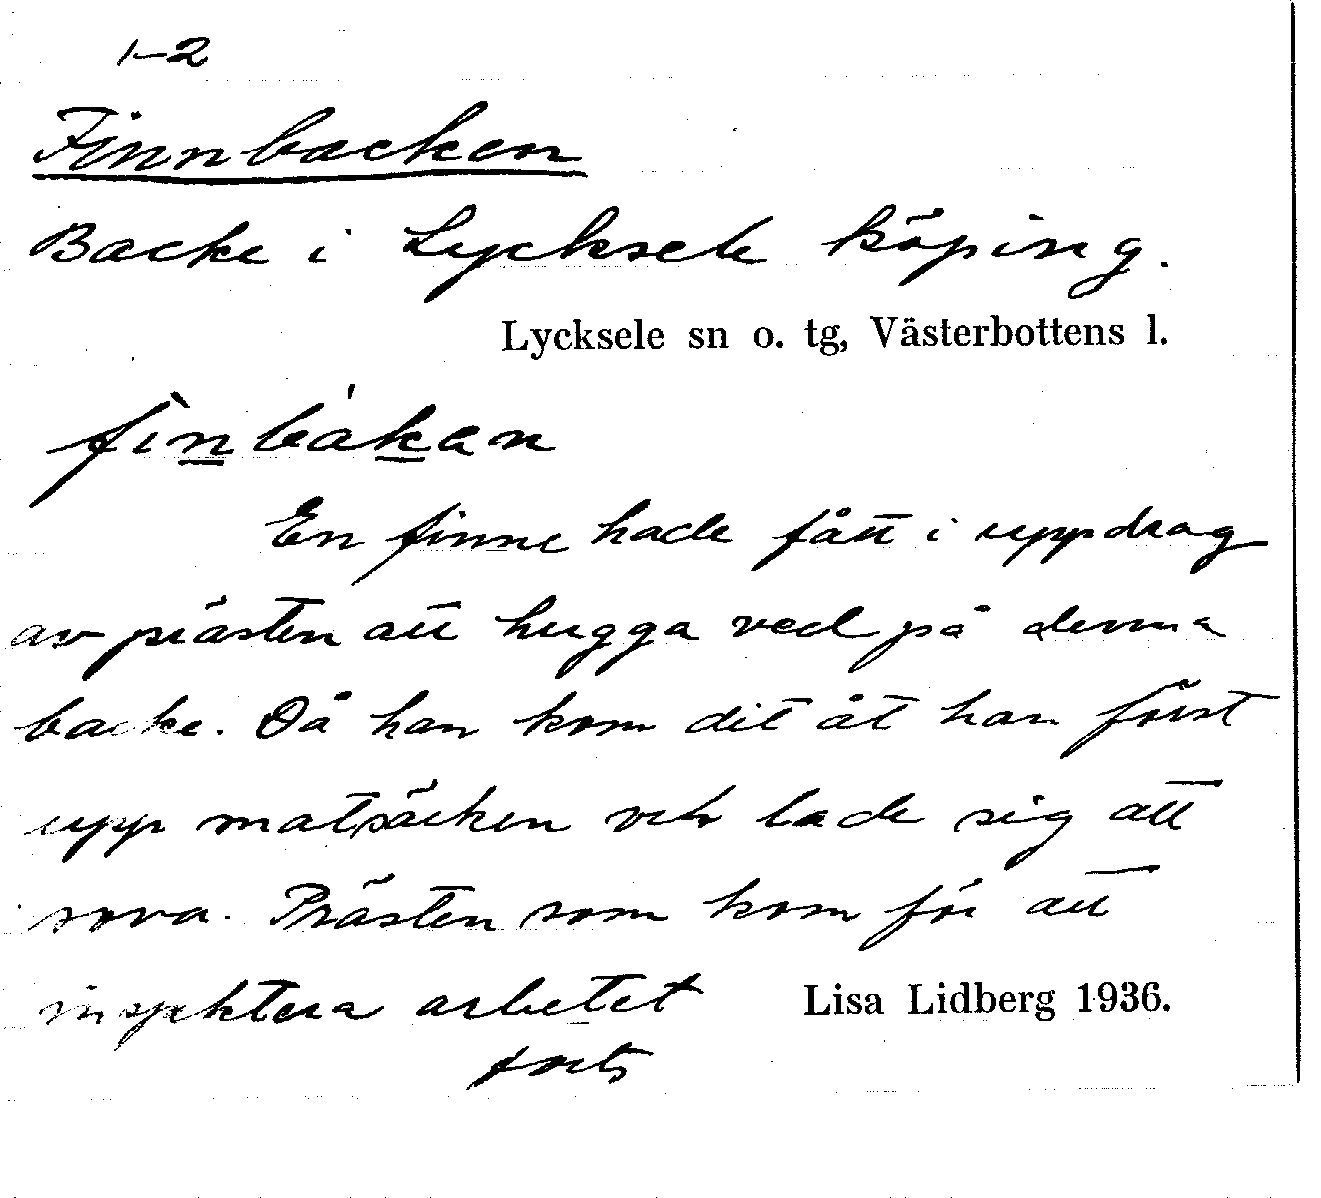 1-2
Finnbacken
Backe i Lycksele köping.
Lycksele sn o. tg, Västerbottens l.
fìnbákan
En finne hade fått i uppdrag
av prästen att hugga ved på denna
backe. Då han kom dit åt han först
upp matsäcken och lade sig att
sova. Prästen som kom för att
inspektera arbetet
Lisa Lidberg 1936.
forts